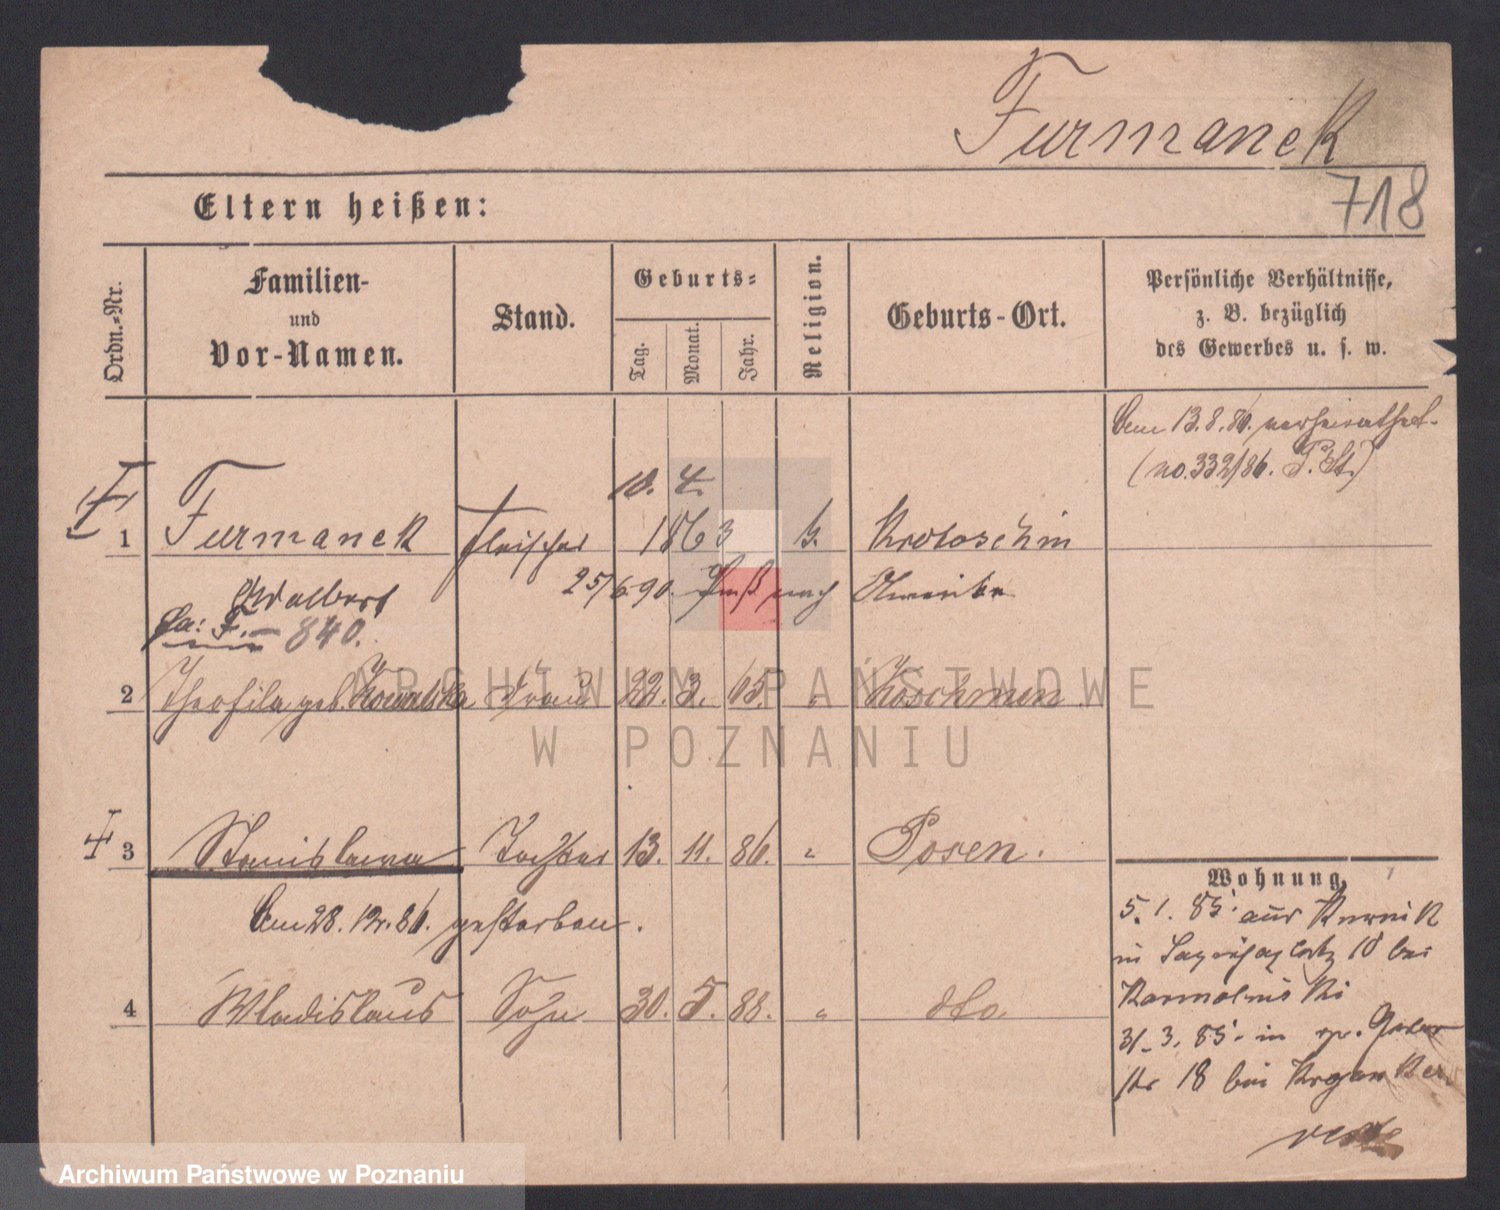 Furmanek
718
Eltern heißen:
Ordn.-Nr.
Familien-
und
Vor-Namen.
Stand.
Geburts-
Tag.
Monat.
Jahr.
Religion.
Geburts-Ort.
Persönliche Verhältnisse,
z. B. bezüglich
des Gewerbes u. s. w.
Am 13.8.86. verheirathet.
(no. 332/86. P. St.)
10. 4.
1 Furmanek Fleischer 1863 k. Krotoschin
25/6 90. Paß nach Amerika
Adalbert
F. 840.
2 Theofila geb. Kowalska Frau 22. 3. 65. " Koschmin
3 Stanislawa Tochter 13. 11. 86. " Posen.
Am 28. 12. 86. gestorben.
4 Wladislaus Sohn 30. 5. 88. " dto
Wohnung.
5. 1. 85. aus Kurnik
in Sapiehaplatz 10 bei
Karmolinski
31. 3. 85. in gr. Gerber
str 18 bei
ARCHIWUM PAŃSTWOWE
W POZNANIU
Archiwum Państwowe w Poznaniu